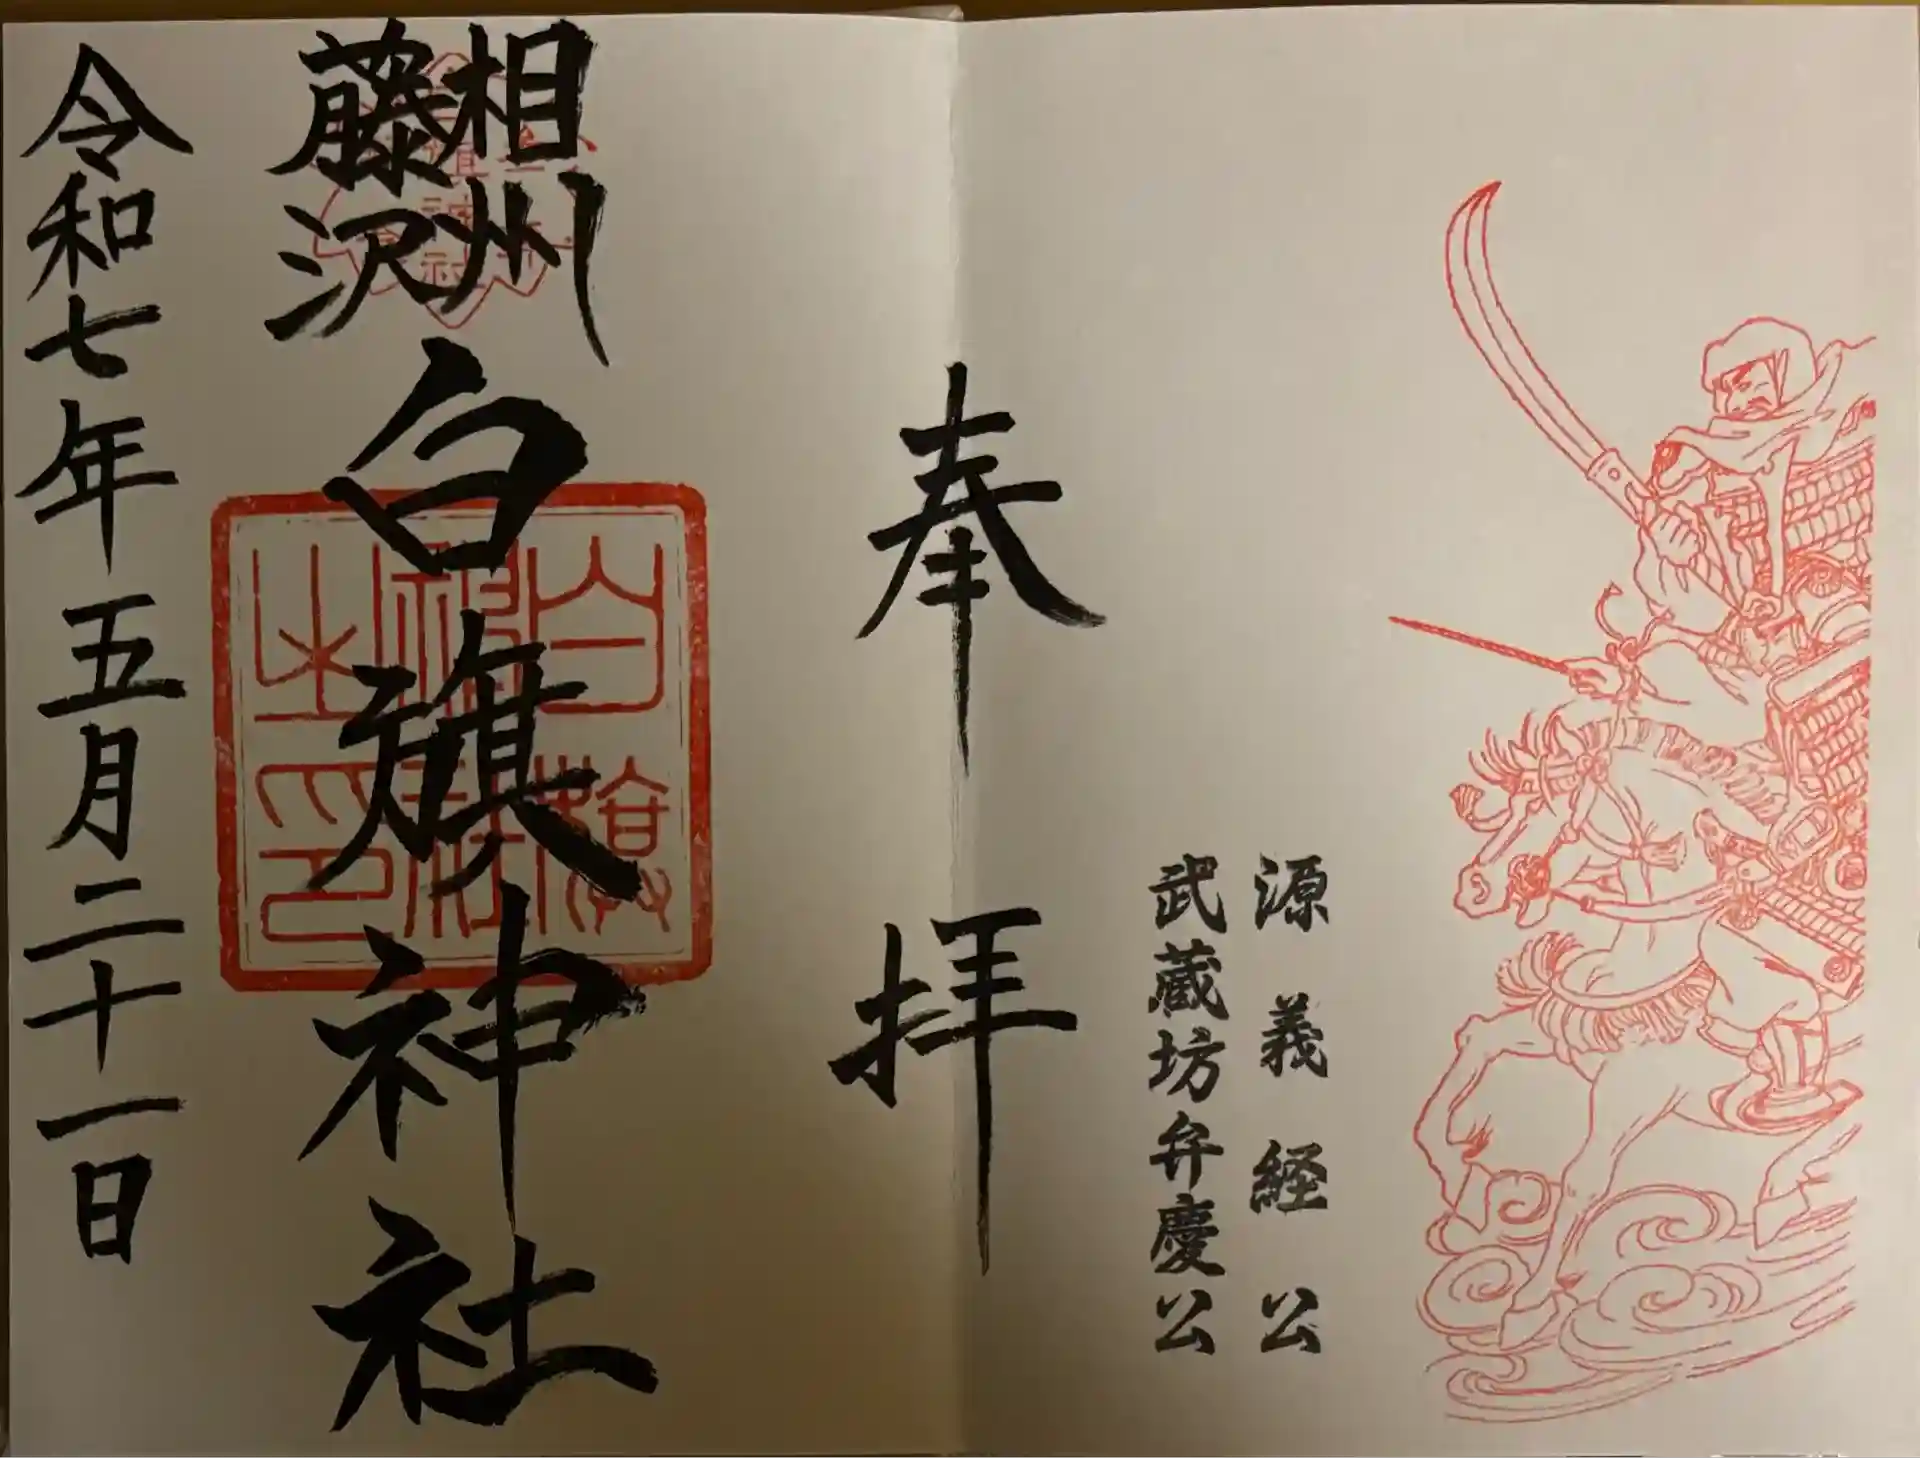 源義経公
武蔵坊弁慶公
奉拝
相州
藤沢
白旗神社
白旗
神社
之印
令和七年五月二十一日